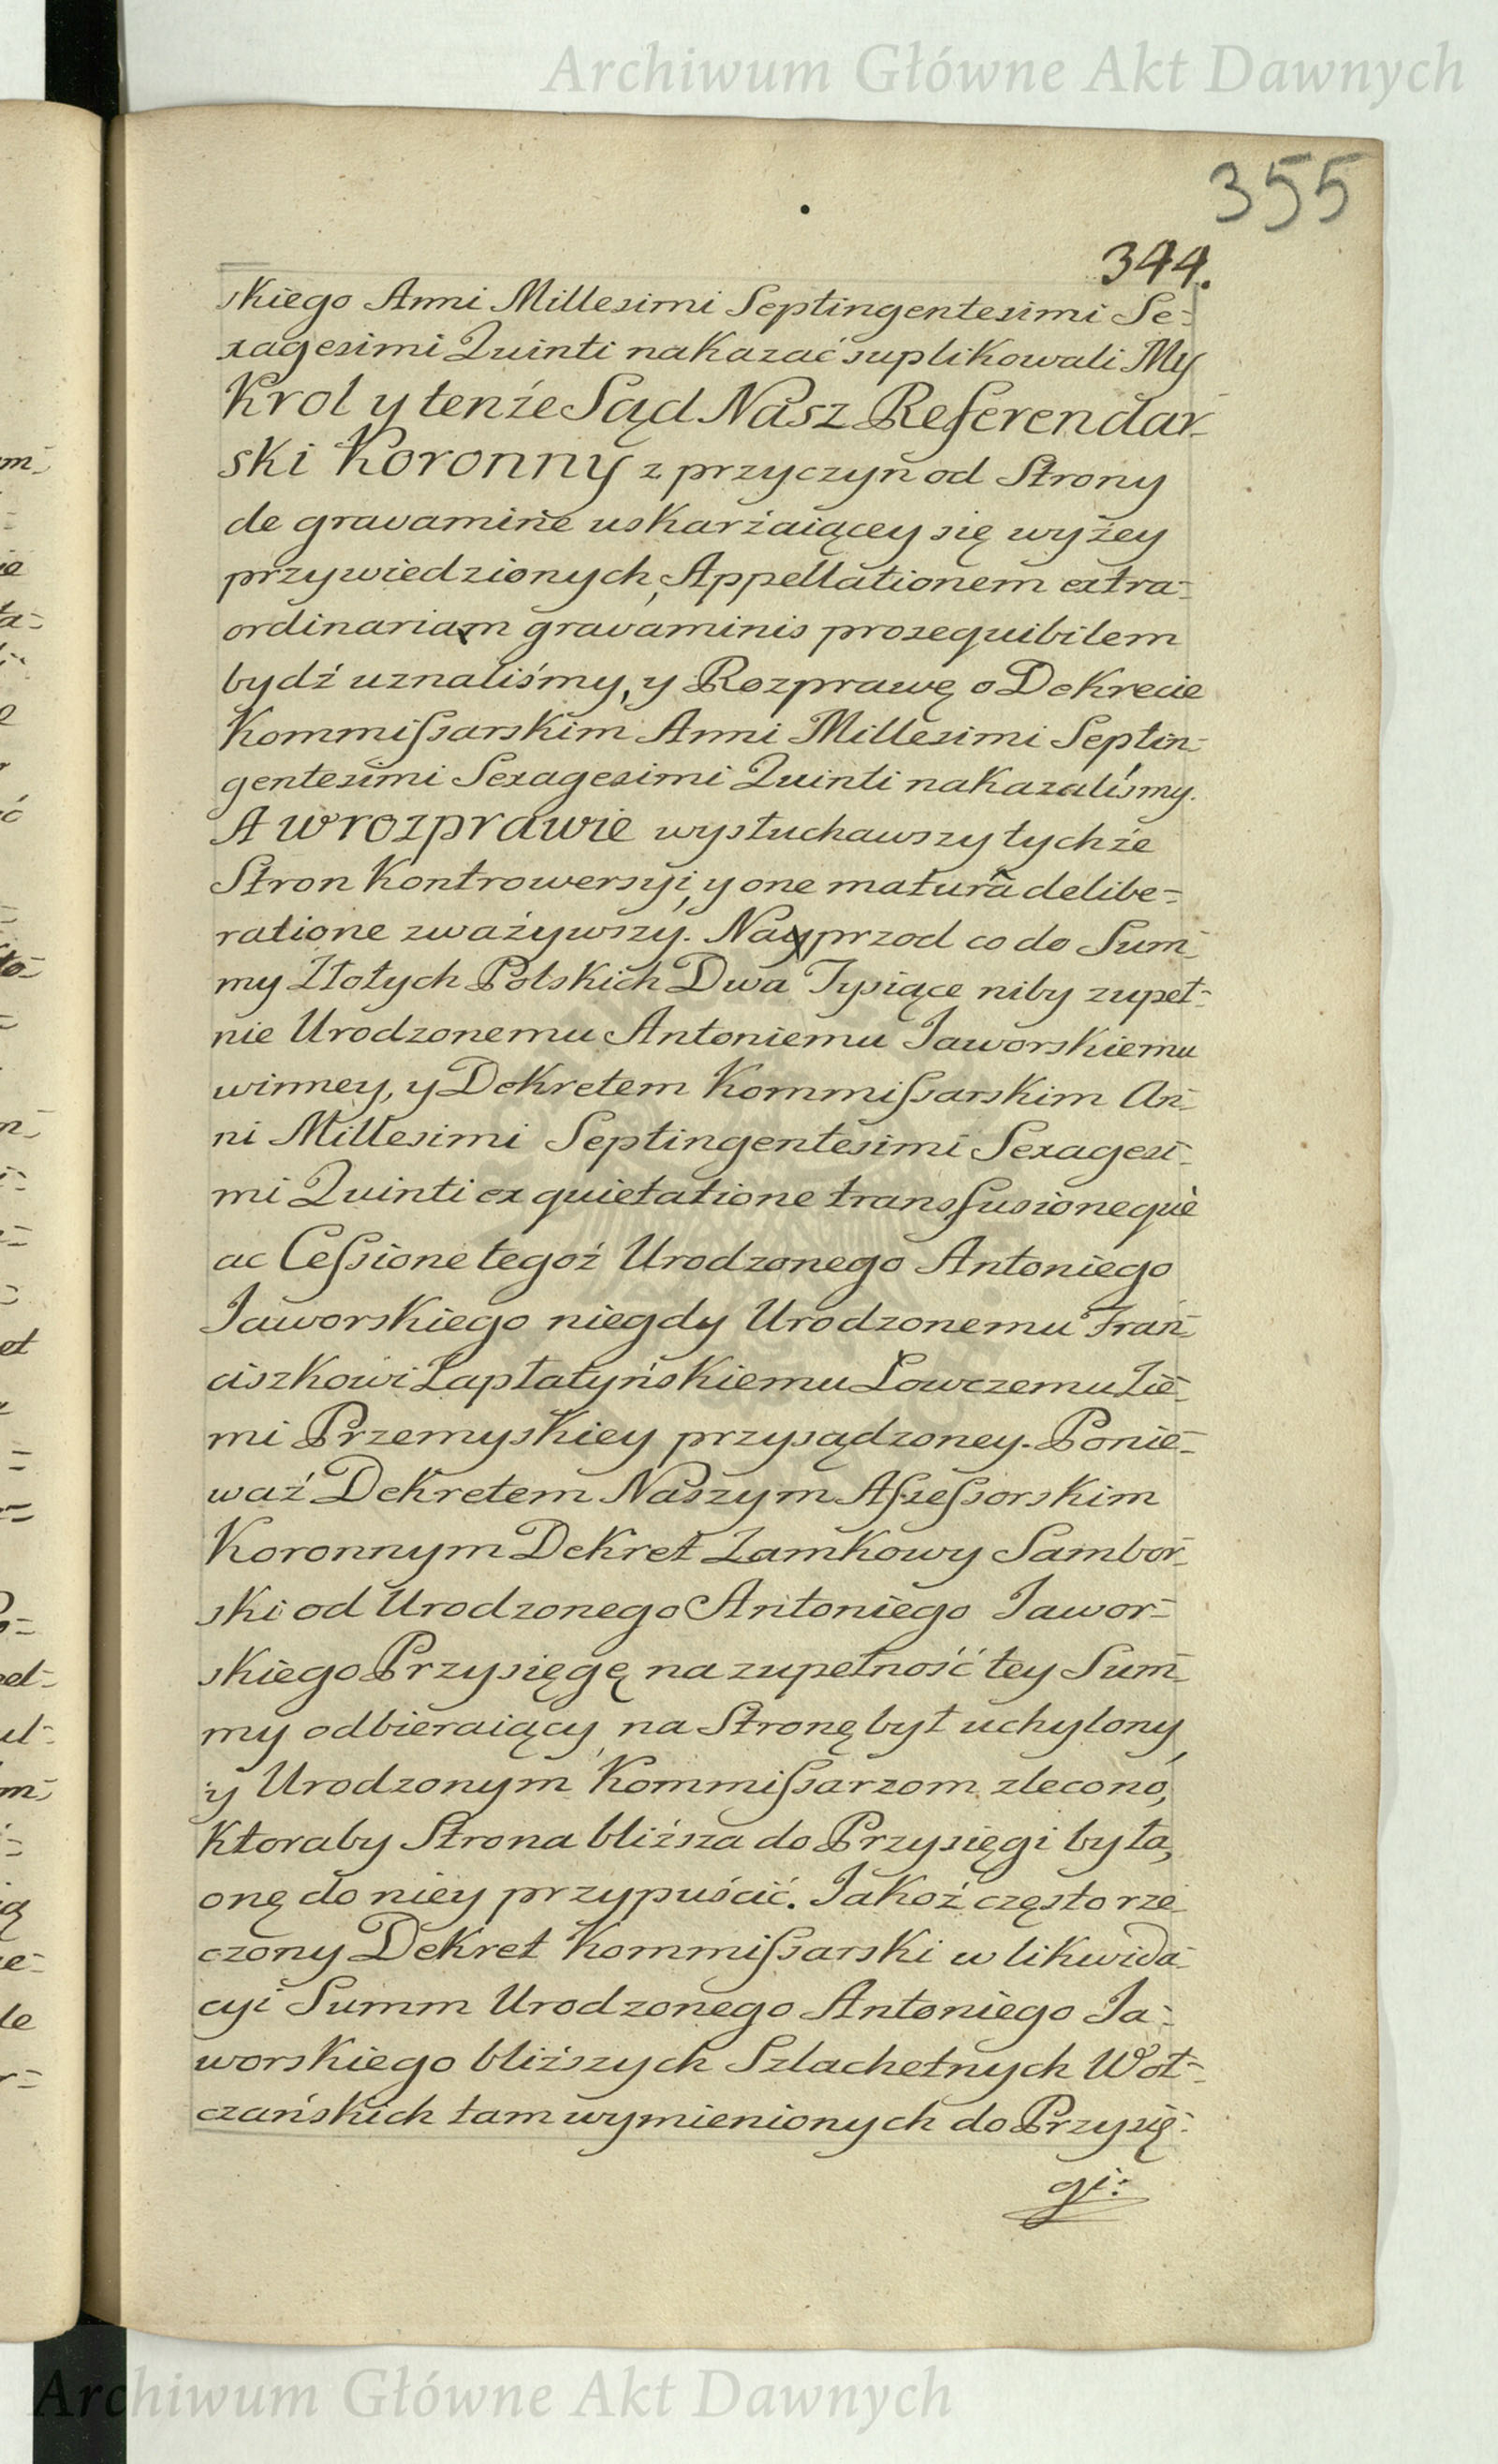 Archiwum Główne Akt Dawnych
355
344.
skiego Anni Millesimi Septingentesimi Se=
xagesimi Quinti nakazać suplikowali My
Krol y tenże Sąd Nasz Referendar-
ski Koronny z przyczyn od Strony
de gravamine uskarżaiącey się wyżey
przywiedzionych, Appellationem extra=
ordinariam gravaminis prosequibilem
bydź uznaliśmy, y Rozprawę o Dekrecie
Kommiſsarskim Anni Millesimi Septin-
gentesimi Sexagesimi Quinti nakazaliśmy.
A w rozprawie wysłuchawszy tychże
Stron Kontrowersyi, y one matura delibe=
ratione zważywszy. Nayprzod co do Sum-
my Złotych Polskich Dwa Tysiące niby zupeł=
nie Urodzonemu Antoniemu Jaworskiemu
winney, y Dekretem Kommiſsarskim An-
ni Millesimi Septingentesimi Sexagesi-
mi Quinti ex quietatione transfusioneque
ac Ceſsione tegoż Urodzonego Antoniego
Jaworskiego niegdy Urodzonemu Fran-
ciszkowi Łapłatyńskiemu Łowczemu Zie-
mi Przemyskiey przysądzoney. Ponie=
waż Dekretem Naszym Aſseſsorskim
Koronnym Dekret Zamkowy Sambor-
ski od Urodzonego Antoniego Jawor=
skiego Przysięgę na zupełność tey Sum-
my odbieraiący, na Stronę był uchylony,
y Urodzonym Kommiſsarzom zlecono,
Ktoraby Strona bliższa do Przysięgi była,
onę do niey przypuścić. Jakoż często rze-
czony Dekret Kommiſsarski w likwida-
cyi Summ Urodzonego Antoniego Ja=
worskiego bliższych Szlachetnych Woł=
czańskich tam wymienionych do Przysię=
gi:
Archiwum Główne Akt Dawnych